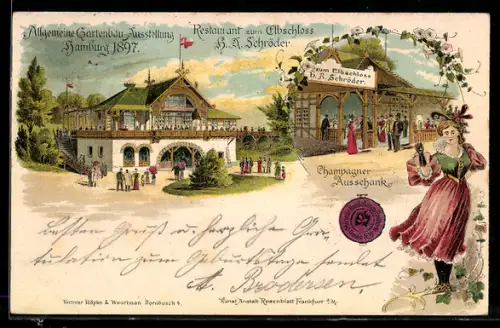 Allgemeine Gartenbau-Ausstellung
Hamburg 1897.
Restaurant zum Elbschloss
H. R. Schröder.
zum Elbschloss
H. R. Schröder.
Champagner
Ausschank.
besten Gruß u. herzliche Gra-
tulation zum Geburtstage sendet
A. Brodersen.
Kunst Anstalt Rosenblatt Frankfurt a/M.